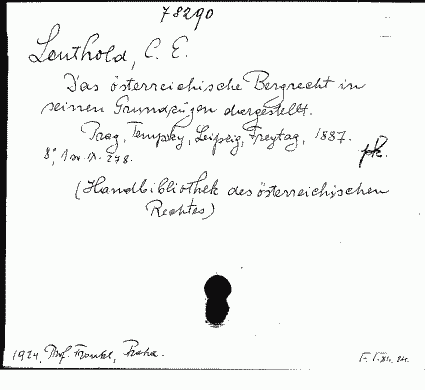 78290
Leuthold, C. E.
Das österreichische Bergrecht in
seinen Grundzügen dargestellt.
Prag, Tempsky, Leipzig, Freytag, 1887.
8°, 278.
(Handbibliothek des österreichischen
Rechtes)
1924, Prof. Frankl, Praha.